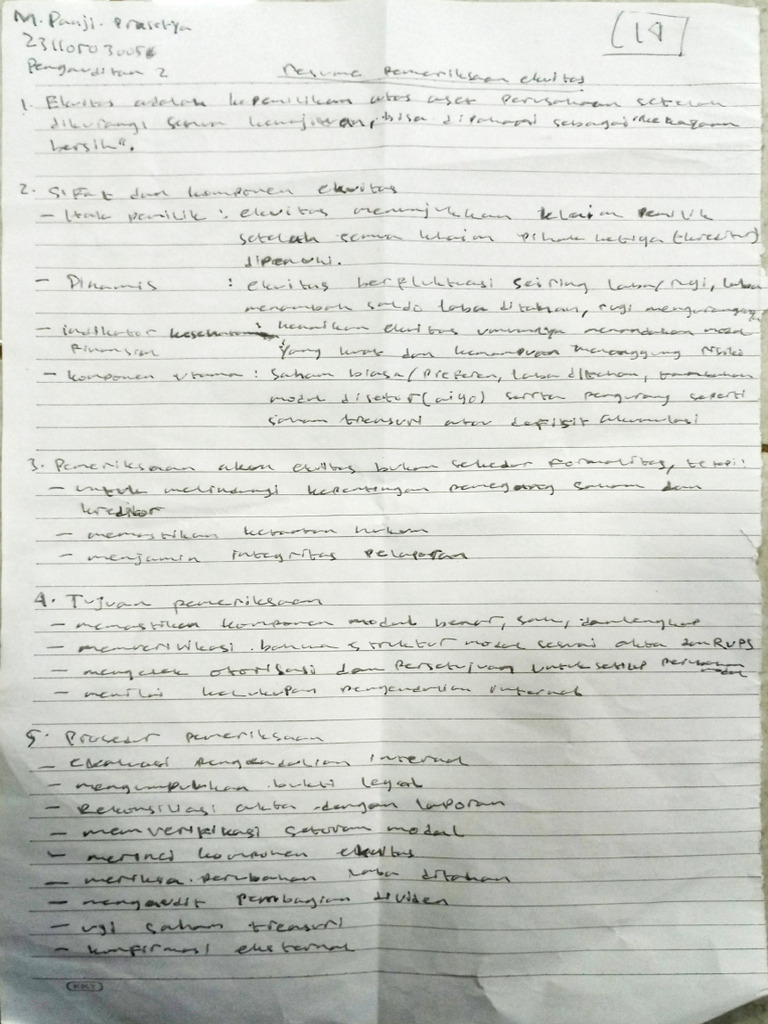 M. Panji. Prasetya
Pengauditan 2
Resume pemeriksaan ekuitas
1. Ekuitas adalah kepemilikan atas aset perusahaan setelah
dikurangi semua kewajiban, bisa dipahami sebagai "kekayaan
bersih".
2. Sifat dan komponen ekuitas
- Hak pemilik : ekuitas menunjukkan klaim pemilik
setelah semua klaim pihak ketiga (kreditur)
dipenuhi.
- Dinamis : ekuitas berfluktuasi seiring laba/rugi, laba
menambah saldo laba ditahan, rugi mengurangi
- indikator : kenaikan ekuitas umumnya menandakan modal
Finansial yang kuat dan kemampuan menanggung risiko
- komponen utama : saham biasa/preferen, laba ditahan, tambahan
modal disetor (aiyo) serta pengurang seperti
saham treasuri atau defisit akumulasi
3. Pemeriksaan akun ekuitas bukan sekedar formalitas, tetapi:
- untuk melindungi kepentingan pemegang saham dan
kreditor
- memastikan ketaatan hukum
- menjamin integritas pelaporan
4. Tujuan pemeriksaan
- memastikan komponen modal benar, sah, dan lengkap
- memverivikasi bahwa struktur modal sesuai akta dan RUPS
- mengecek otorisasi dan persetujuan untuk setiap perubahan
modal
- menilai kecukupan pengendalian internal
5. Prosedur pemeriksaan
- evaluasi pengendalian internal
- mengumpulkan bukti legal
- Rekonsiliasi akta dengan laporan
- memverifikasi setoran modal
- merinci komponen ekuitas
- meriksa perubahan laba ditahan
- mengaudit pembagian dividen
- uji saham treasuri
- konfirmasi eksternal
KKY